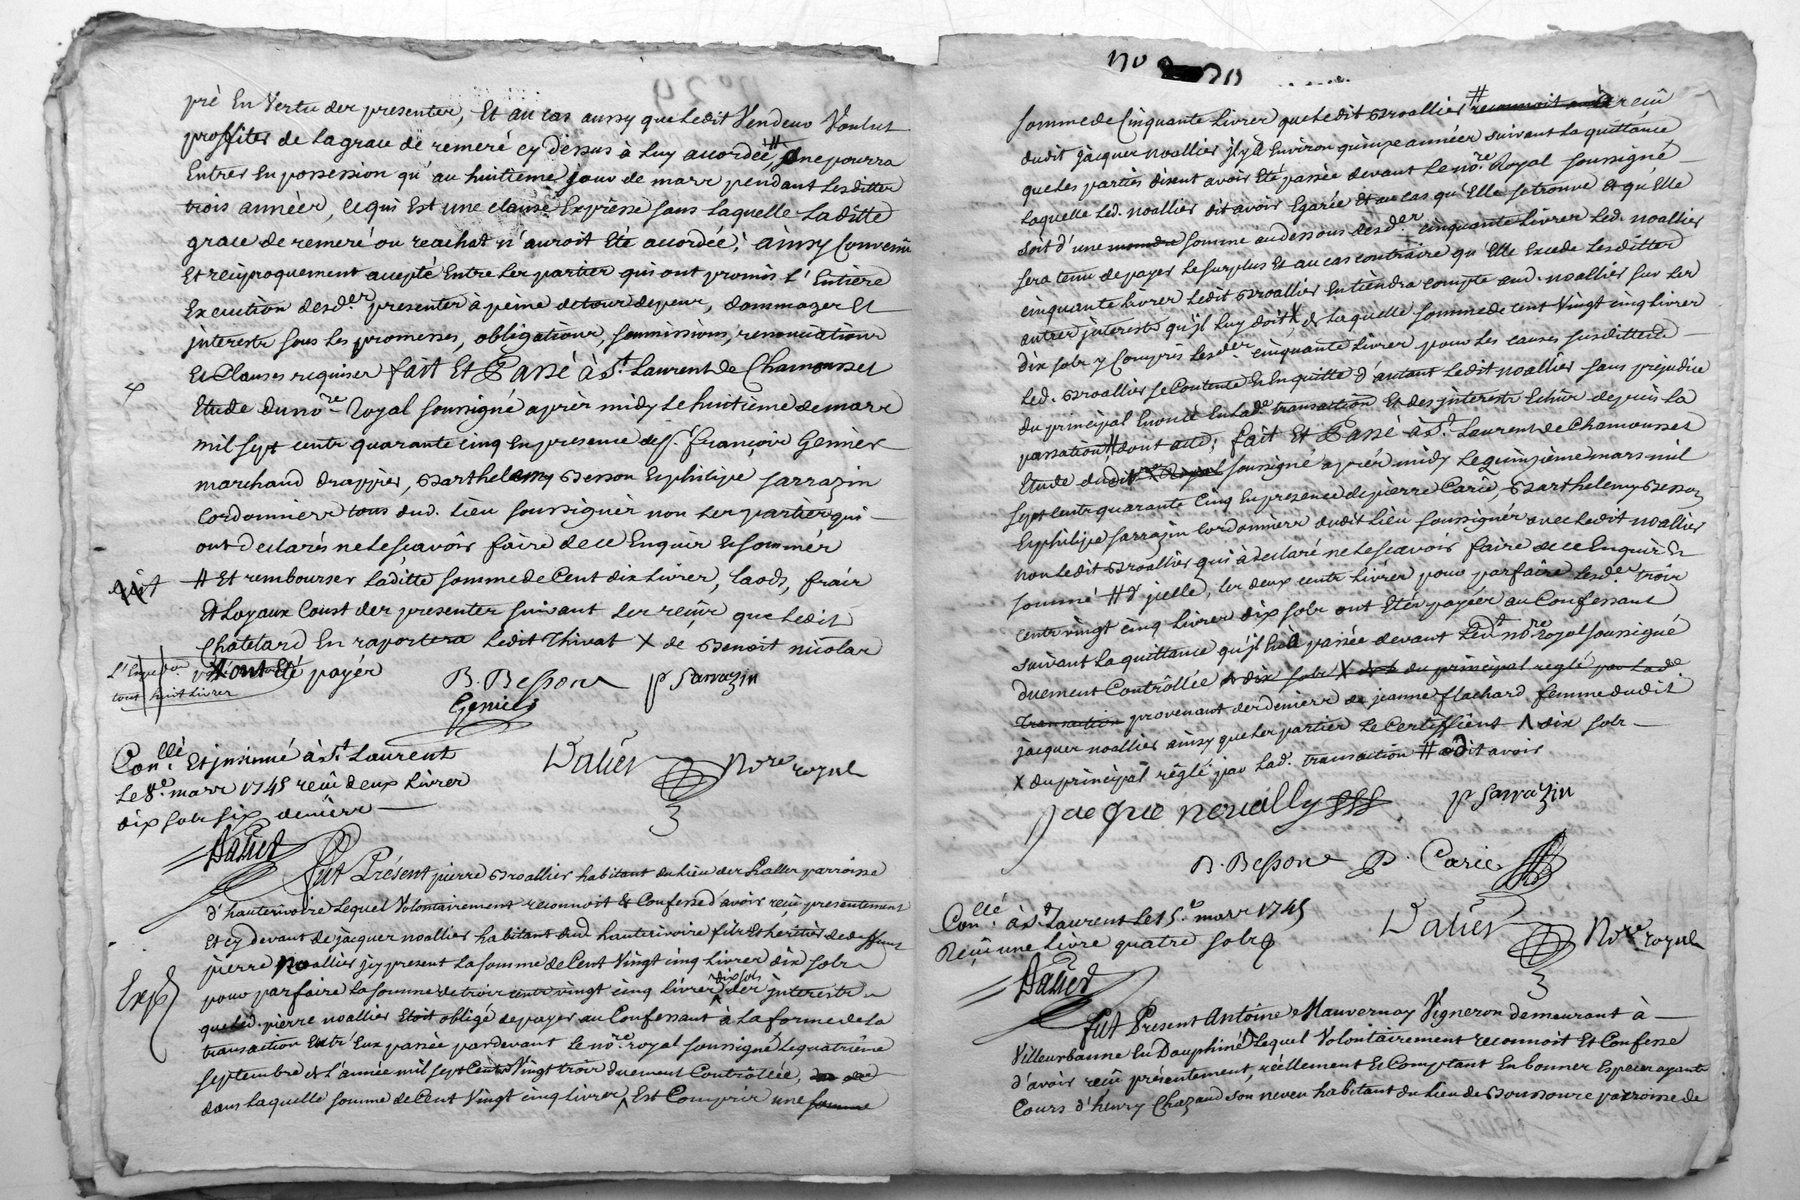 pré En Vertu des presentes, Et au cas aussy que Ledit Vendeur Voulut
proffiter de la grace de remeré cy dessus à Luy accordée, # ne pourra
Entrer En possession qu'au huitieme jour de mars pendant Lesdittes
trois années, ce qui Est une clause Expresse sans Laquelle Laditte
grace de remeré ou reachat n'auroit Eté accordée; ainsy Convenu
Et reciproquement accepté Entre Les parties qui ont promis L'Entiere
Execution desd.es presentes à peine de tous depens, dommages Et
jnterests sous Les promesses, obligations, soumissions, renonciations
Et Clauses requises fait Et Passé à S.t Laurent de Chamousset
Etude du no.re Royal soussigné après midy Le huitième de mars
mil sept cents quarante cinq En presence de s.r françois Genier
marchand drappier, Barthelemy Besson Et philipe sarrazin
Cordonniers tous dud. Lieu soussignés non Les parties qui
ont declarés ne Le scavoir faire de ce Enquis Et sommés
# Et rembourser Laditte somme de Cent dix Livres, Laods, frais
Et Loyaux Coust des presentes suivant Les reçus que Ledit
Chatelard En raportera Ledit Thivat X de Benoit nicolas
ont Eté payés
tout huit Livres
B. Besson P Sarrazin
Genier
Con.llé Et jnsinué à S.t Laurent
Le 8.e mars 1745 reçu deux Livres
dix sols six deniers
Dalier No.re royal
Dalier
Fut Présent pierre Broallier habitant du Lieu des halles parroisse
d'hauterivoire Lequel Volontairement reconnoit Et Confesse d'avoir reçu presentement
Et cy devant de jacques noallier habitant dud. hauterivoire fils Et heritier de deffunt
pierre noallier jcy present La somme de Cent Vingt cinq Livres dix sols
Exp
pour parfaire La somme de trois cents vingt cinq Livres dix sols des jnterests
que Led. pierre noallier Etoit obligé de payer au Confessant à La forme de La
transaction Entr'Eux passée pardevant Le no.re royal soussigné Le quatrième
septembre de L'année mil sept Cents Vingt trois duement Controllée,
dans Laquelle somme de Cent Vingt cinq Livres ^ Est Compris une somme
no 30
somme de Cinquante Livres que Ledit Broallier # reconnoit avoir reçu
dudit jacques noallier jl y à Environ quinze années suivant La quittance
que Les parties disent avoir Eté passée devant Le no.re Royal soussigné
Laquelle Led. noallier dit avoir Egarée Et au cas qu'Elle se trouve Et qu'Elle
soit d'une moindre somme au dessous desd.es cinquante Livres Led. noallier
sera tenu de payer Le surplus Et au cas contraire qu'Elle Excede Lesdittes
cinquante Livres Ledit Broallier En tiendra compte aud. noallier sur Les
autres jnterests qu'jl Luy doit X, de Laquelle somme de cent Vingt cinq Livres
dix sols y Compris Lesd.es cinquante Livres pour Les causes susdittes
Led. Broallier se Contente Et En quitte d'autant Ledit noallier sans préjudice
du principal Enoncé En Lad.e transaction Et des jnterests Echus depuis La
passation # dont acte; fait Et Passé à S.t Laurent de Chamousset
Etude dudit no.re Royal soussigné après midy Le quinzième mars mil
sept Cents quarante Cinq En presence de pierre Carié, Barthelemy Besson
Et philipe sarrazin Cordonniers dudit Lieu soussignés avec Ledit noallier
non Ledit Broallier qui à declaré ne Le scavoir faire de ce Enquis Et
sommé # d'jcelle, Les deux cents Livres pour parfaire Lesd.es trois
cents vingt cinq Livres dix sols ont Etés payées au Confessant
suivant La quittance qu'jl En à passée devant Led.t no.re royal soussigné
duement Controllée du principal reglé par Lad.e
transaction provenant des deniers de jeanne flachard femme dudit
jacques noallier ainsy que Les parties Le Certiffient ^ dix sols
X du principal réglé par Lad. transaction # dit avoir
jacque nouailly P Sarrazin
B. Besson P. Carié
Con.llé à S.t Laurent Le 15.e mars 1745
Reçu une Livre quatre sols
Dalier No.re royal
Dalier
Fut Present Antoine Mauvernay Vigneron demeurant à
Villeurbanne En Dauphiné Lequel Volontairement reconnoit Et Confesse
d'avoir reçu présentement, réellement Et Comptant En bonnes Especes ayants
Cours d'henry Chazaud son neveu habitant du Lieu de parroisse de